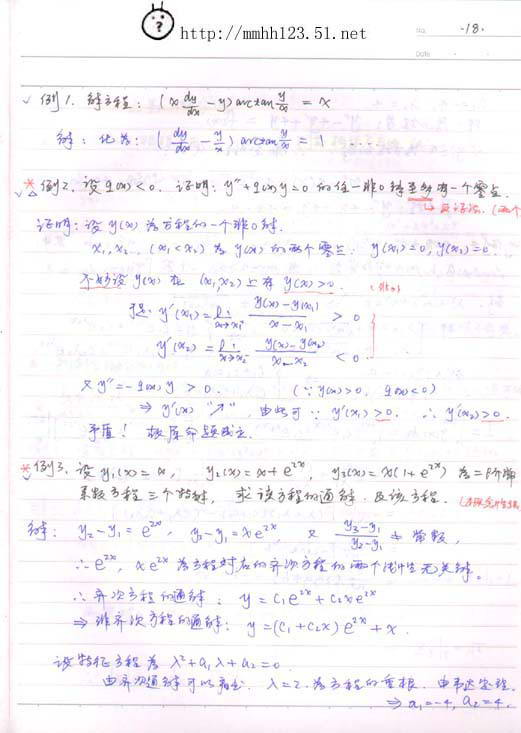 http://mmhh123.51.net
No. -18-
Date
√ 例1. 解方程: (x dy/dx - y) arctan y/x = x
解: 化为: (dy/dx - y/x) arctan y/x = 1 ......
* 例2. 设 q(x)<0. 证明: y''+q(x)y=0 的任一非0解至多有一个零点.
↳ 反证法. (两个
证明: 设 y(x) 为方程的一个非0解.
x₁, x₂ (x₁<x₂) 为 y(x) 的两个零点: y(x₁)=0, y(x₂)=0.
不妨设 y(x) 在 (x₁,x₂) 上有 y(x)>0.
于是: y'(x₁) = lim x→x₁⁺ y(x)-y(x₁) / x-x₁ > 0
y'(x₂) = lim x→x₂⁻ y(x)-y(x₂) / x-x₂ < 0
又 y''=-q(x)y > 0. (∵ y(x)>0, q(x)<0)
⇒ y'(x) "↗", 由此可: ∵ y'(x₁)>0. ∴ y'(x₂)>0.
矛盾! 故原命题成立.
* 例3. 设 y₁(x)=x, y₂(x)=x+e^{2x}, y₃(x)=x(1+e^{2x}) 为二阶常
系数方程三个特解, 求该方程的通解. 及该方程.
解: y₂-y₁=e^{2x}, y₃-y₁=xe^{2x}, 又 y₃-y₁ / y₂-y₁ ≠ 常数,
∴ e^{2x}, xe^{2x} 为方程对应的齐次方程的两个线性无关解.
∴ 齐次方程的通解: y=C₁e^{2x}+C₂xe^{2x}
⇒ 非齐次方程的通解: y=(C₁+C₂x)e^{2x}+x.
设特征方程为 λ²+a₁λ+a₂=0.
由齐次通解可以看出, λ=2 为方程的重根. 由韦达定理.
⇒ a₁=-4, a₂=4.